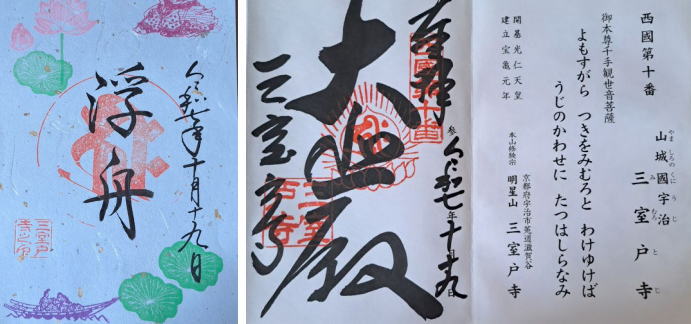 令和七年十月十九日
浮舟
西國第十番
やましろのくに うじ
山城國宇治
みむろとじ
三室戸寺
御本尊千手観世音菩薩
よもすがら つきをみむろと わけゆけば
うじのかわせに たつはしらなみ
開基光仁天皇
建立宝亀元年
本山修験宗
京都府宇治市莵道滋賀谷
明星山 三室戸寺
奉拝
参
令和七年十月十九日
大悲殿
三室戸寺